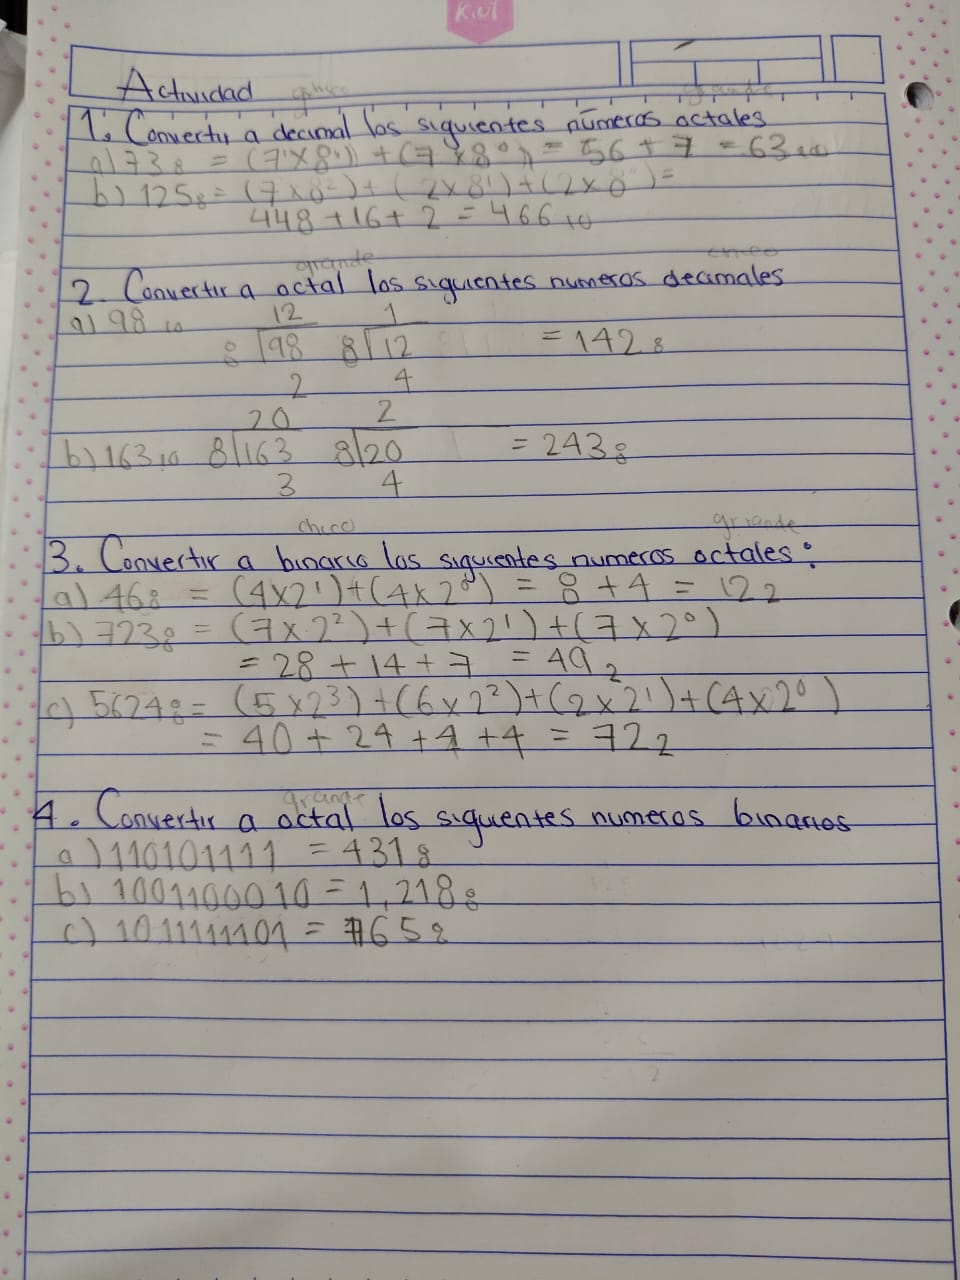 Kivi
Actividad
chico grande
1. Convertir a decimal los siguientes números octales
a) 73₈ = (7x8¹) + (7x8⁰) = 56 + 7 = 63₁₀
b) 125₈ = (7x8²) + (2x8¹) + (2x8⁰) =
448 + 16 + 2 = 466₁₀
grande chico
2. Convertir a octal los siguientes numeros decimales
12 1
a) 98₁₀ 8 98 8 12 = 142₈
2 4
20 2
b) 163₁₀ 8 163 8 20 = 243₈
3 4
chico grande
3. Convertir a binario los siguientes numeros octales:
a) 46₈ = (4x2¹) + (4x2⁰) = 8 + 4 = 12₂
b) 723₈ = (7x2²) + (7x2¹) + (7x2⁰)
= 28 + 14 + 7 = 49₂
c) 5624₈ = (5x2³) + (6x2²) + (2x2¹) + (4x2⁰)
= 40 + 24 + 4 + 4 = 72₂
grande
4. Convertir a octal los siguientes numeros binarios
a) 110101111 = 431₈
b) 1001100010 = 1,218₈
c) 1011111101 = 765₈